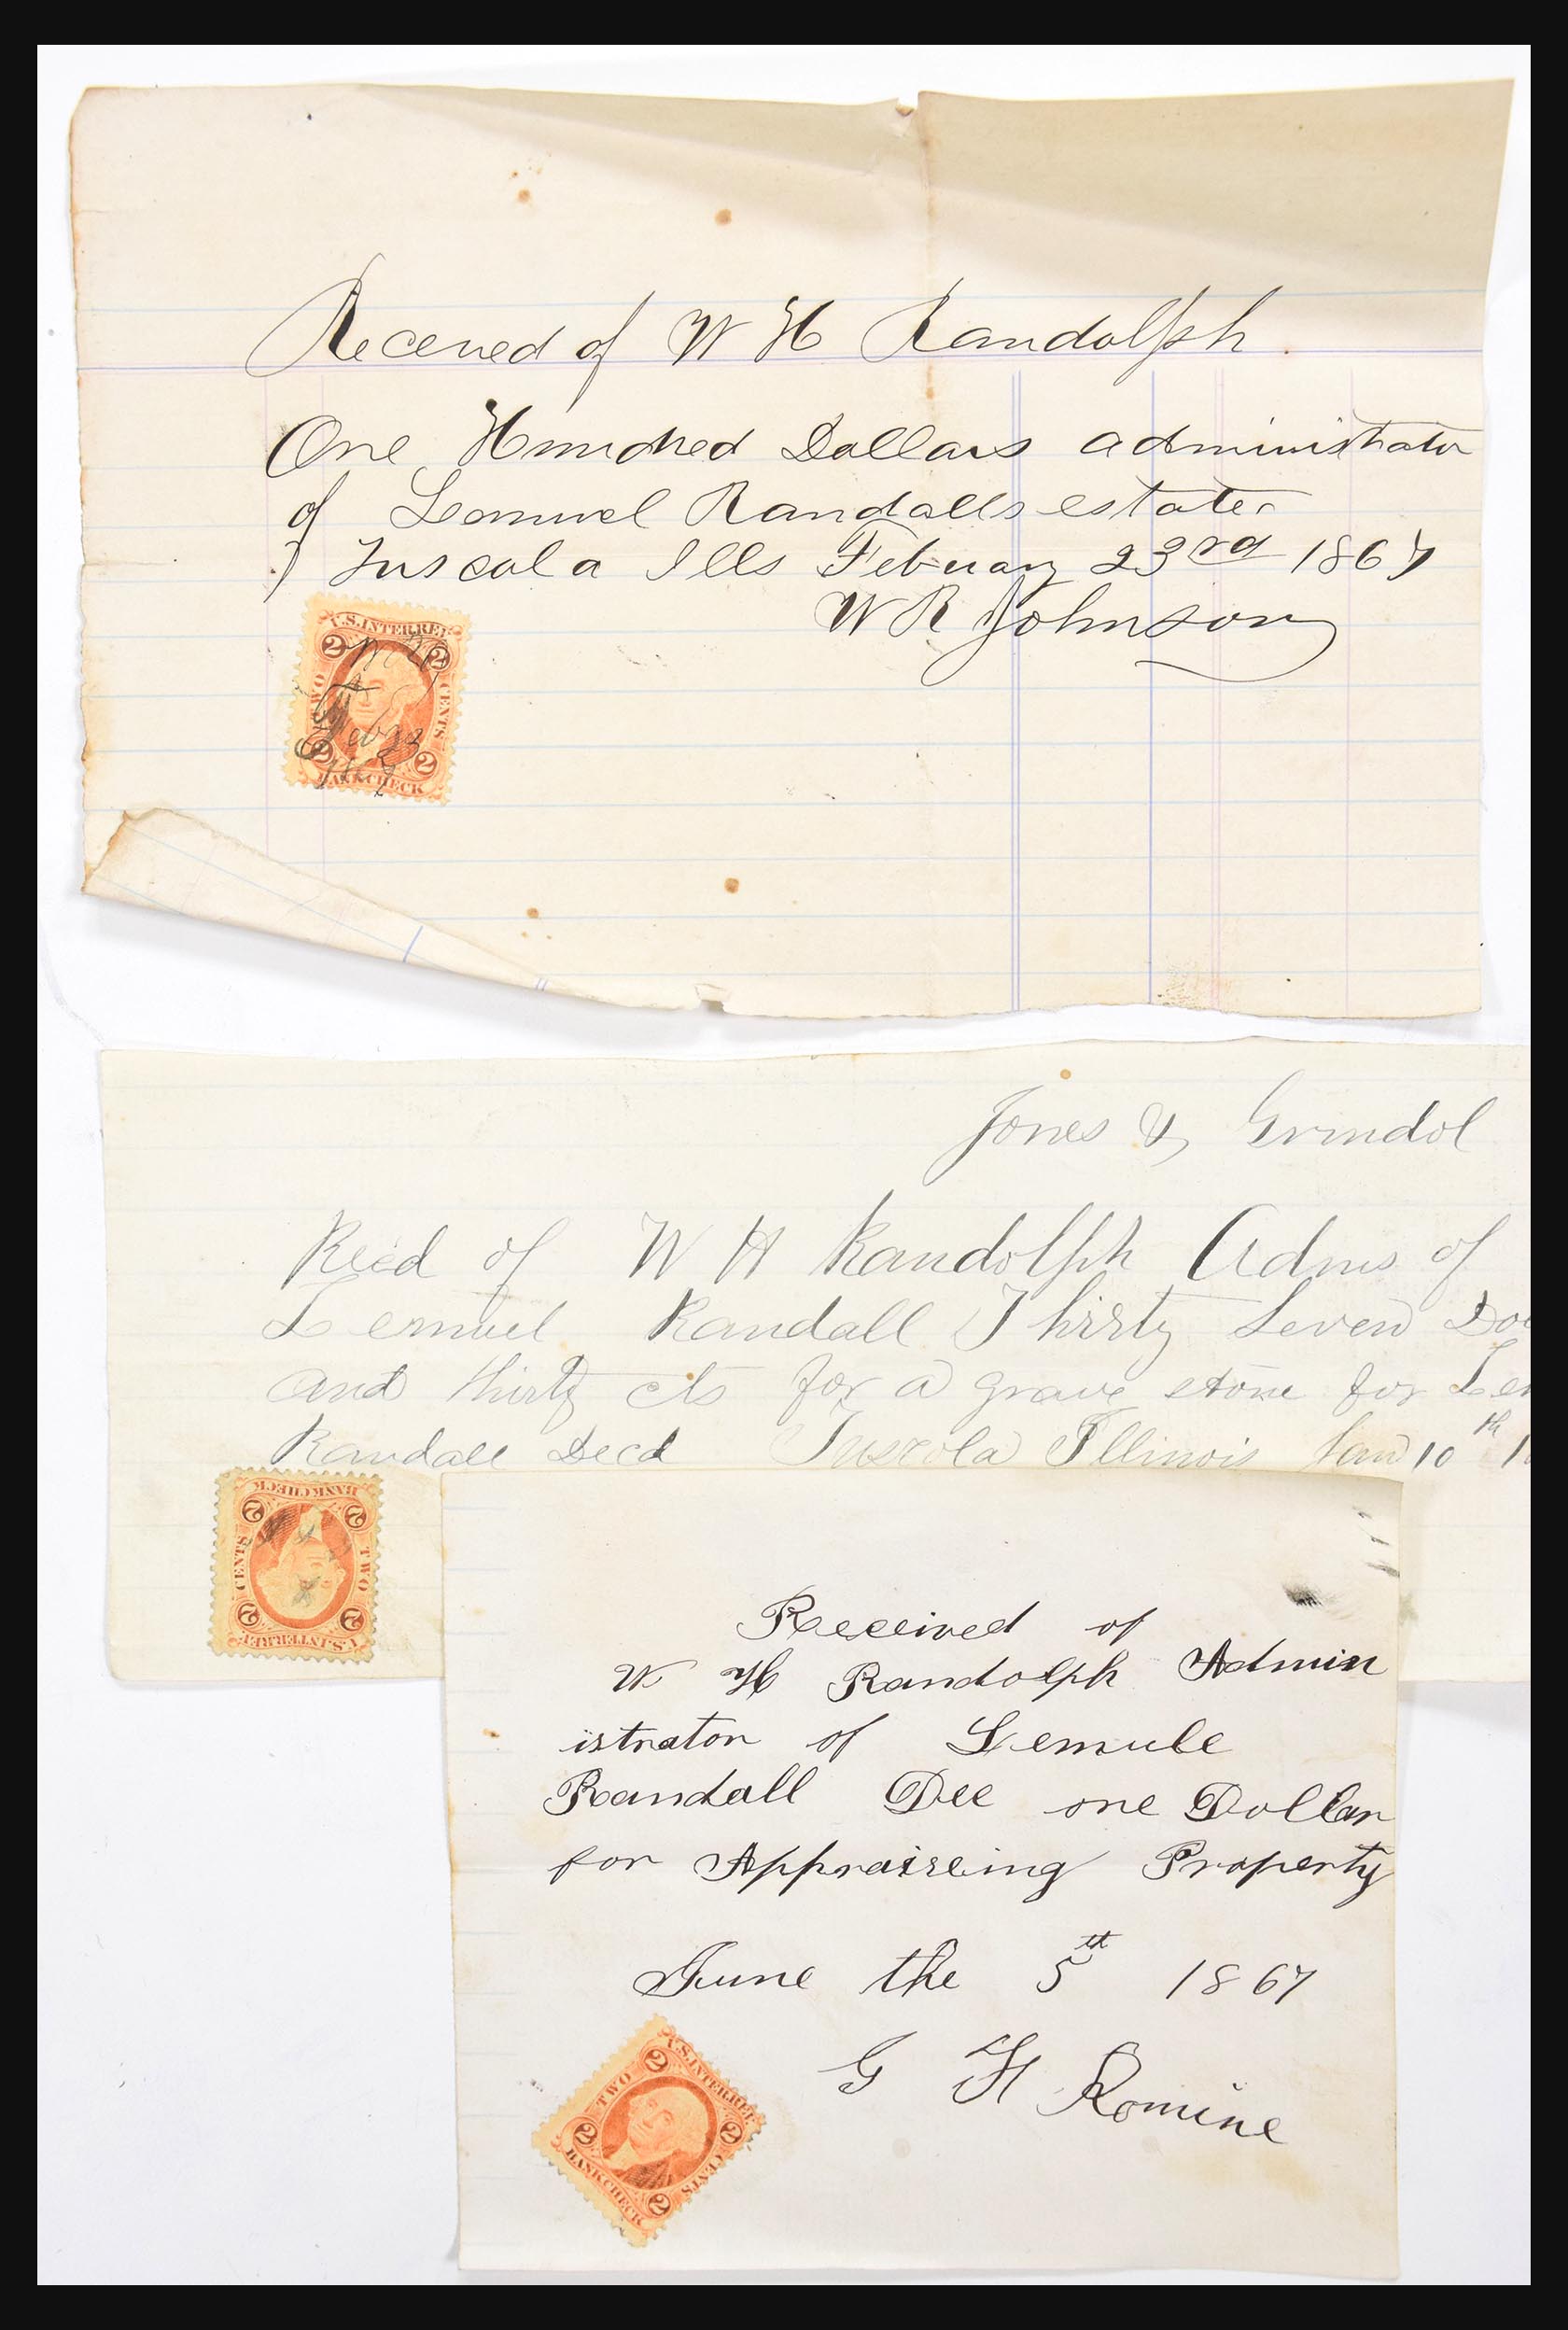 Receved of W H Randolph
One Hundred Dollars administrator
of Lemuel Randalls estate
Tuscola Ills Febuary 23rd 1867
W R Johnson
U.S. INTER. REV.
2 2
TWO CENTS
Feb 23
2 2
BANK CHECK
Jones & Grindol
Recd of W H Randolph Adms of
Lemuel Randall Thirty Seven Do
and thirty cts for a grave stone for Lem
Randall Decd Tuscola Illinois Jan 10th 1
BANK CHECK
2 2
CENTS TWO
2 2
U.S. INTER. REV.
Received of
W H Randolph Admin
istrator of Lemule
Randall Dec one Dollar
for Appraiseing Property
June the 5th 1867
G H Romine
U.S. INTER. REV.
2 2
TWO CENTS
2 2
BANK CHECK